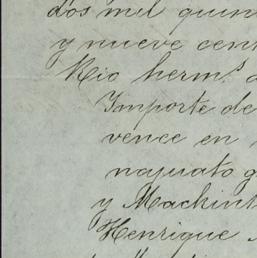 dos mil quin
y nueve cent
Rio herm.s
Importe de
vence en
najuato g
y Mackint
Henrique